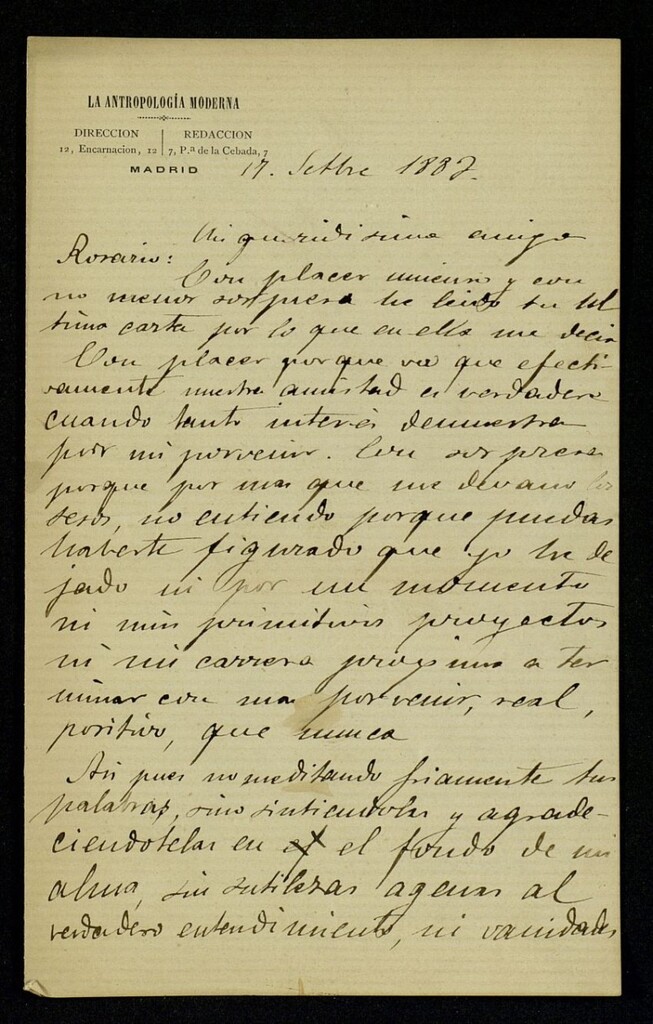 LA ANTROPOLOGÍA MODERNA
DIRECCION | REDACCION
12, Encarnacion, 12 | 7, P.ª de la Cebada, 7
MADRID
17. Setbre 1887.
Mi queridisima amiga
Rosario:
Con placer inmenso y con
no menor sorpresa he leido tu úl
tima carta por lo que en ella me decia
Con placer porque veo que efecti-
vamente nuestra amistad es verdadera
cuando tanto interés demuestra
por mi porvenir. Con sorpresa
porque por mas que me devano los
sesos, no entiendo porque puedas
haberte figurado que yo he de
jado ni por un momento
ni mis primitivos proyectos
ni mi carrera proxima a ter
minar con mas porvenir, real,
positivo, que nunca
Asi pues no meditando friamente tus
palabras, sino sintiendolas y agrade-
ciendotelas en el fondo de mi
alma, sin sutilezas agenas al
verdadero entendimiento, ni vanidades